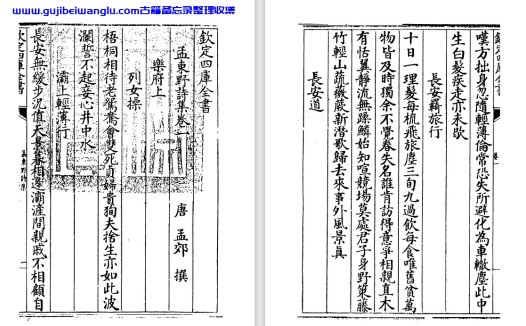 www.gujibeiwanglu.com古籍备忘录整理收集
欽定四庫全書
孟東野詩集卷一
唐 孟郊 撰
樂府上
列女操
梧桐相待老鴛鴦會雙死貞婦貴狥夫捨生亦如此波
瀾誓不起妾心井中水
灞上輕薄行
長安無緩步况值天景暮相逢灞滻間親戚不相顧自
欽定四庫全書
孟東野詩集
嘆方拙身忽隨輕薄倫常恐失所避化為車轍塵此中
生白髮疾走亦未歇
長安羇旅行
十日一理髮每梳飛旅塵三旬九過飲每食唯舊貧萬
物皆及時獨余不覺春失名誰肯訪得意爭相親直木
有恬翼靜流無躁鱗始知喧競場莫處君子身野策藤
竹輕山蔬薇蕨新潛歌歸去來事外風景真
長安道